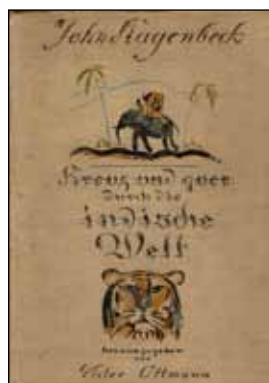 John Hagenbeck
Kreuz und quer
durch die
indische
Welt
Herausgegeben
von
Victor Ottmann